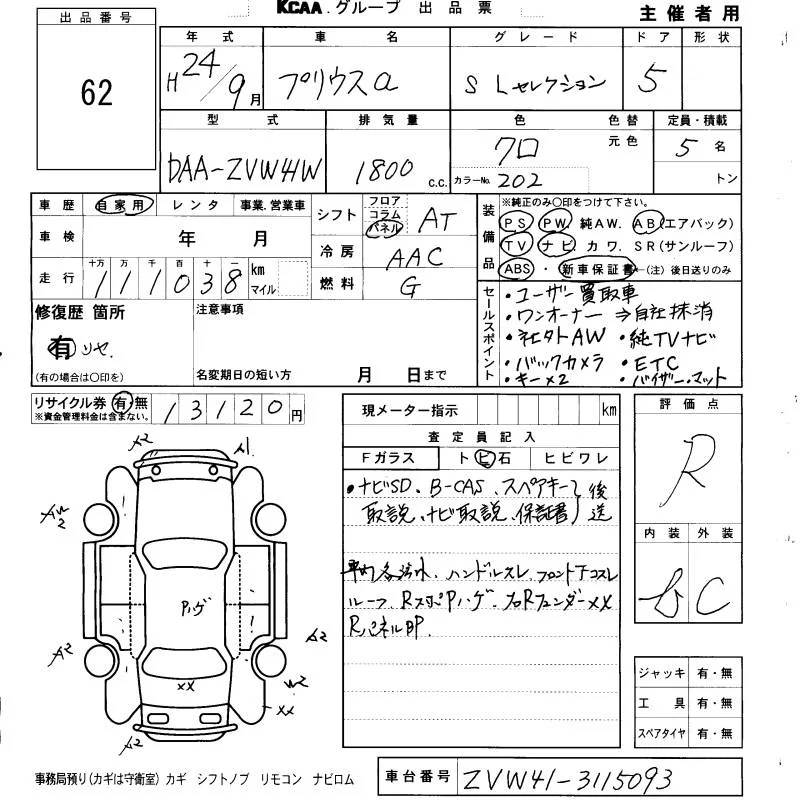 KCAA.グループ 出品票
主催者用
出品番号
62
年式 車名 グレード ドア 形状
H24/9月 プリウスα S Lセレクション 5
型式 排気量 色 色替 定員・積載
DAA-ZVW41W 1800 c.c. クロ 元色 5名
カラーNo. 202 トン
車歴 自家用 レンタ 事業.営業車
シフト フロア コラム パネル AT
車検 年 月
冷房 AAC
走行 十万 万 千 百 十 一
111038 km マイル
燃料 G
装備品 ※純正のみ〇印をつけて下さい。
PS PW 純AW. AB(エアバック)
TV ナビ カワ. SR(サンルーフ)
ABS ・ 新車保証書 ー(注)後日送りのみ
修復歴 箇所
有
(有の場合は〇印を)
注意事項
名変期日の短い方 月 日まで
セールスポイント
・ユーザー買取車
・ワンオーナー ⇒自社抹消
・社外AW ・純TVナビ
・バックカメラ ・ETC
・キー×2 ・バイザー・マット
リサイクル券 有・無 13120円
※資金管理料金は含まない。
現メーター指示 km
査定員記入
Fガラス トビ石 ヒビワレ
・ナビSD、B-CAS、スペアキー 後
取説、ナビ取説、保証書 送
ハンドルスレ、フロント下コスレ
ルーフ、RスポPハゲ、
Rパネル
評価点
R
内装 外装
b C
A2 A1
AW2
Pハゲ
A2
A2 W2
XX
XX
A2
ジャッキ 有・無
工具 有・無
スペアタイヤ 有・無
事務局預り(カギは守衛室) カギ シフトノブ リモコン ナビロム
車台番号 ZVW41-3115093